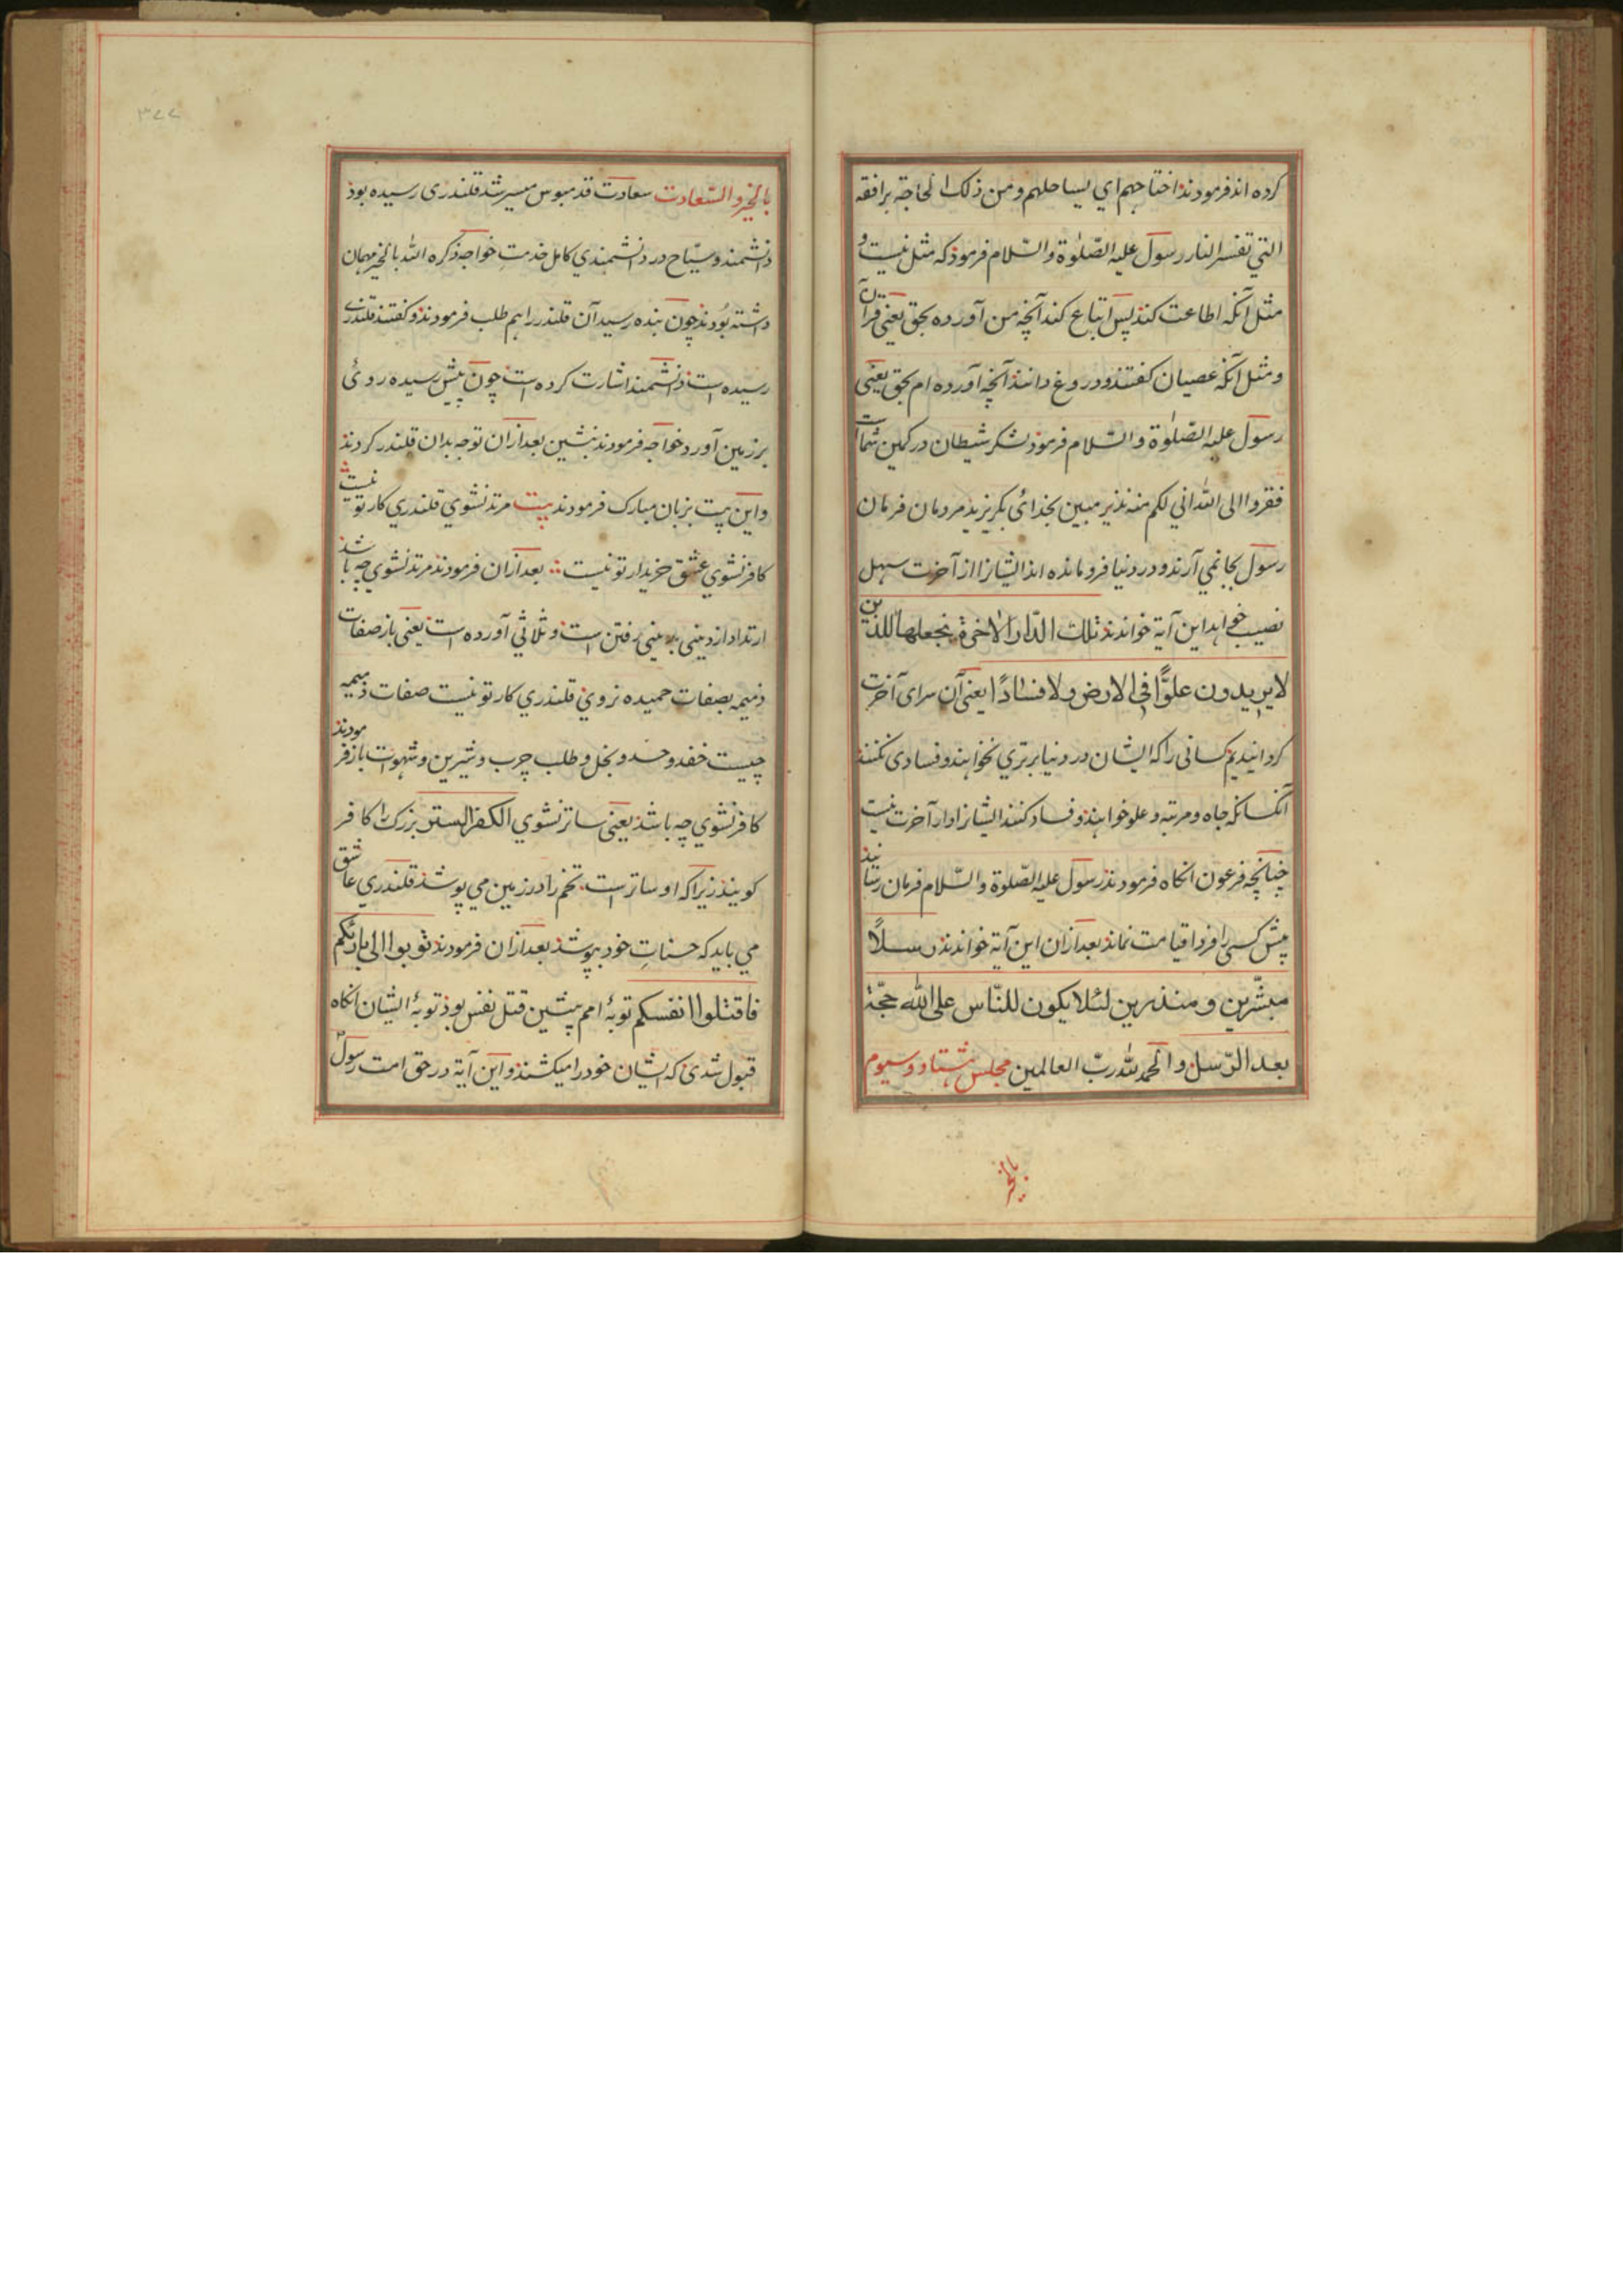 کرده اند فرمودند اجتاحهم ای یستاصلهم و من ذلک الحاجة برافقه
التي تفسر النار رسول علیه الصّلوة والسّلام فرموذ که مثل نیست و
مثل آنکه اطاعت کند پس اتباع کند آنچه من آورده بحق یعنی قرآن
و مثل آنکه عصیان کفتند و دروغ دانند آنچه آورده ام بحق یعنی
رسول علیه الصّلوة والسّلام فرموذ لشکر شیطان در کمین شماست
ففروا الی الله اني لکم منه نذیر مبین بخدای بکریزید مردمان فرمان
رسول بجا نمي آرند و در دنیا فرو مانده اند ایشانرا از آخرت سهل
نصیب خواهد این آیة خواندند تلك الدّار الاخرة نجعلها للذین
لایریدون علوًّا فی الارض ولا فسادًا یعنی آن سرای آخرت
کردانیدیم کسانی را که ایشان در دنیا برتري نخواهند و فسادی نکنند
آنکسانکه جاه و مرتبه و علو خواهند و فساد کنند ایشانرا دار آخرت نیست
چنانچه فرعون انکاه فرمودند رسول علیه الصّلوة والسّلام فرمان رسانید
پیش کسی را فردا قیامت نماند بعد ازان این آیة خواندند رسلاً
مبشّرین و منذرین لئلا یکون للنّاس علی الله حجّة
بعد الرّسل والحمد لله ربّ العالمین مجلس هشتاد و سیوم
بالخیر
۳۷۷
بالخیر والسّعادت سعادت قدمبوس میسر شد قلندری رسیده بوذ
دانشمند و سیّاح در دانشمندي کامل خدمتِ خواجه ذکره الله بالخیر مهمان
داشته بُودند چون بنده رسید آن قلندر را هم طلب فرمودند و کفتند قلندرے
رسیده است دانشمند اشارت کرده است چون پیش رسیده روئ
بر زمین آورد خواجه فرمودند بنشین بعد ازان توجه بدان قلندر کردند
و این بیت بزبان مبارک فرمودند بیت مرتد نشوي قلندري کار تو نیست
کافر نشوي عشق خریدار تو نیست بعد ازان فرمودند مرتد نشوي چه باشد
ارتداد از دینی بدینی رفتن است و ثلاثي آورده است یعنی باز صفات
ذمیمه بصفات حمیده نروي قلندري کار تو نیست صفات ذمیمه
چیست حقد و حسد و بخل و طلب چرب و شیرین و شهوات باز فرمودند
کافر نشوي چه باشد یعنی ساتر نشوي الکفر الستر بزرک را کافر
کویند زیراکه او ساتر است تخم را در زمین می پوشد قلندري عاشق
می باید که حسناتِ خود بپوشد بعد ازان فرمودند توبوا الی بارئکم
فاقتلوا انفسکم توبهٔ امم پیشین قتل نفس بوذ توبهٔ ایشان انکاه
قبول شدی که ایشان خود را میکشتند و این آیة در حق امت رسول